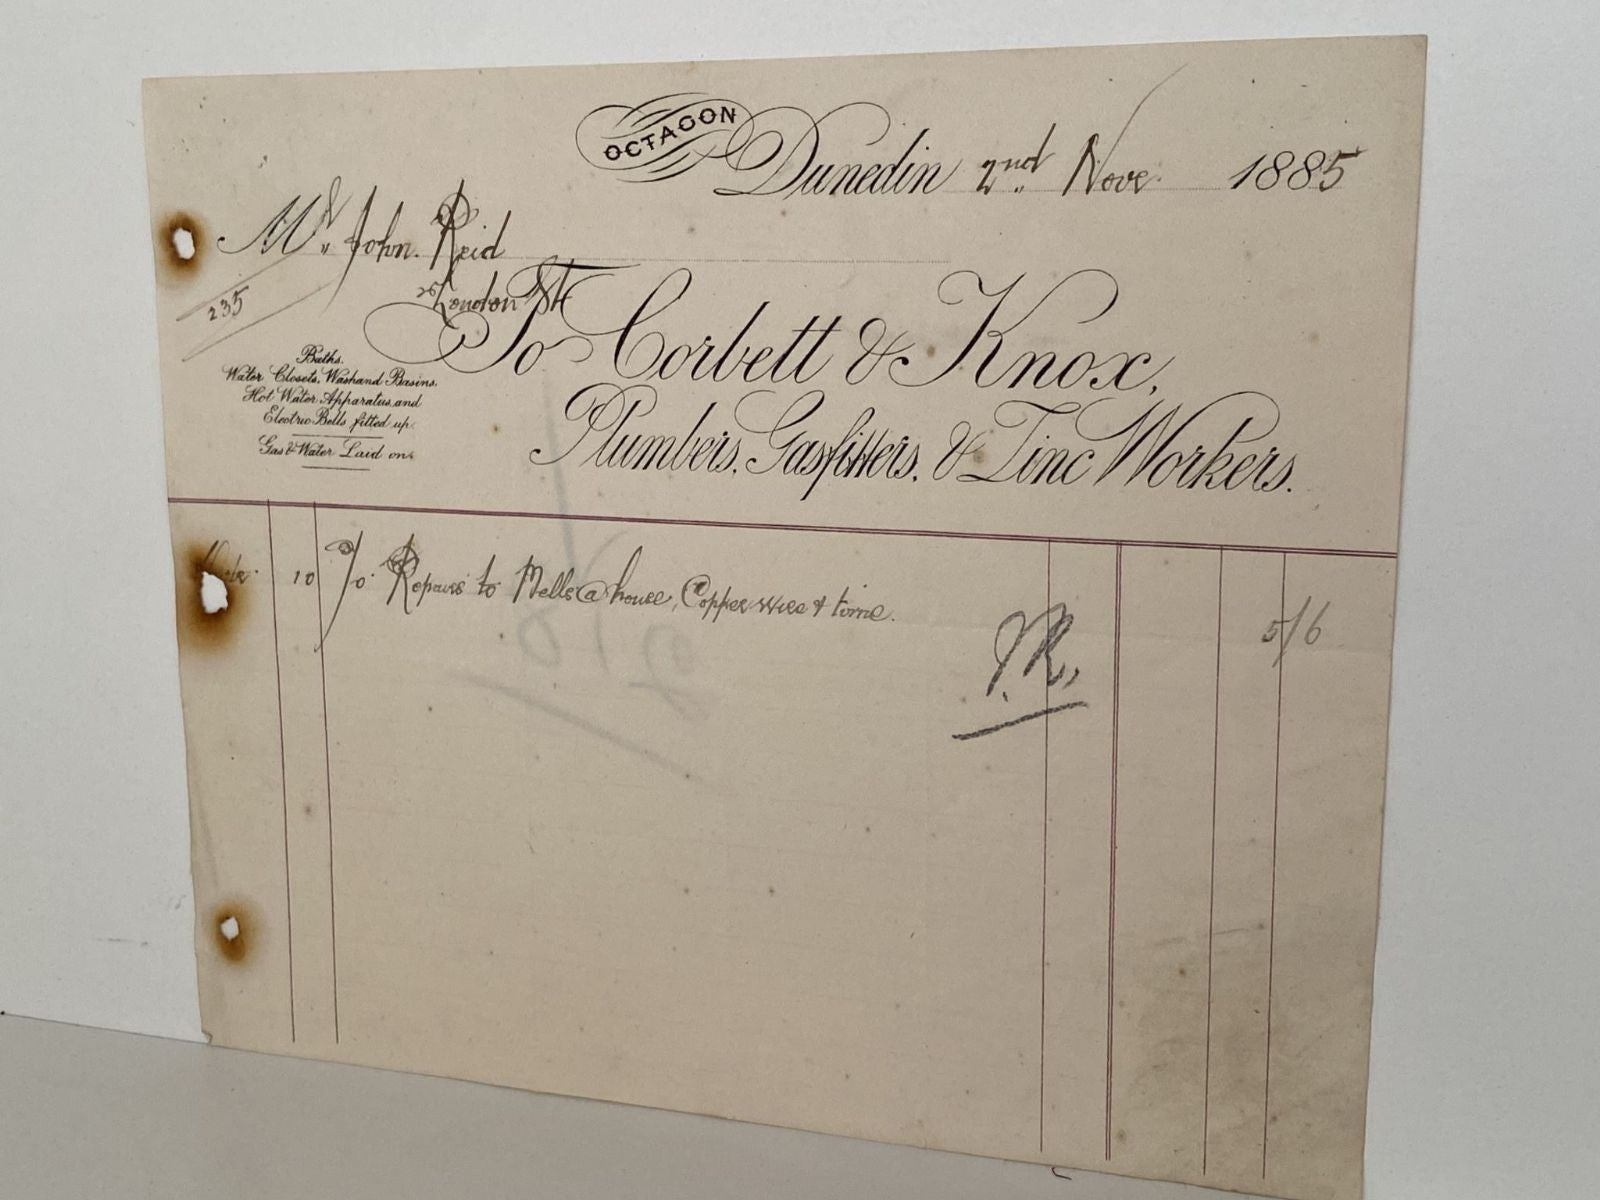 OCTAGON
Dunedin 2nd Nove 1885
Mr. John Reid
London St
235
To Corbett & Knox,
Plumbers, Gasfitters, & Zinc Workers.
Baths.
Water Closets, Washand Basins,
Hot Water Apparatus and
Electric Bells fitted up.
Gas & Water Laid on.
10 To Repairs to Bells @ house, Copper wire & time. 5/6
J.R.